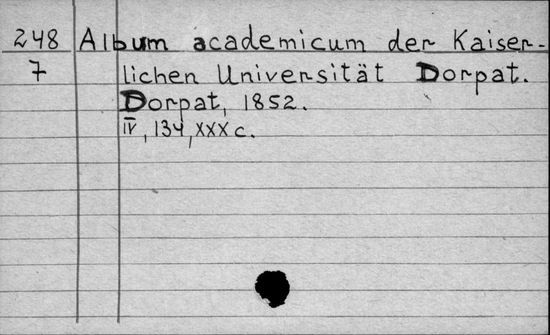 248 Album academicum der Kaiser-
7 lichen Universität Dorpat.
Dorpat, 1852.
IV, 134, XXX c.